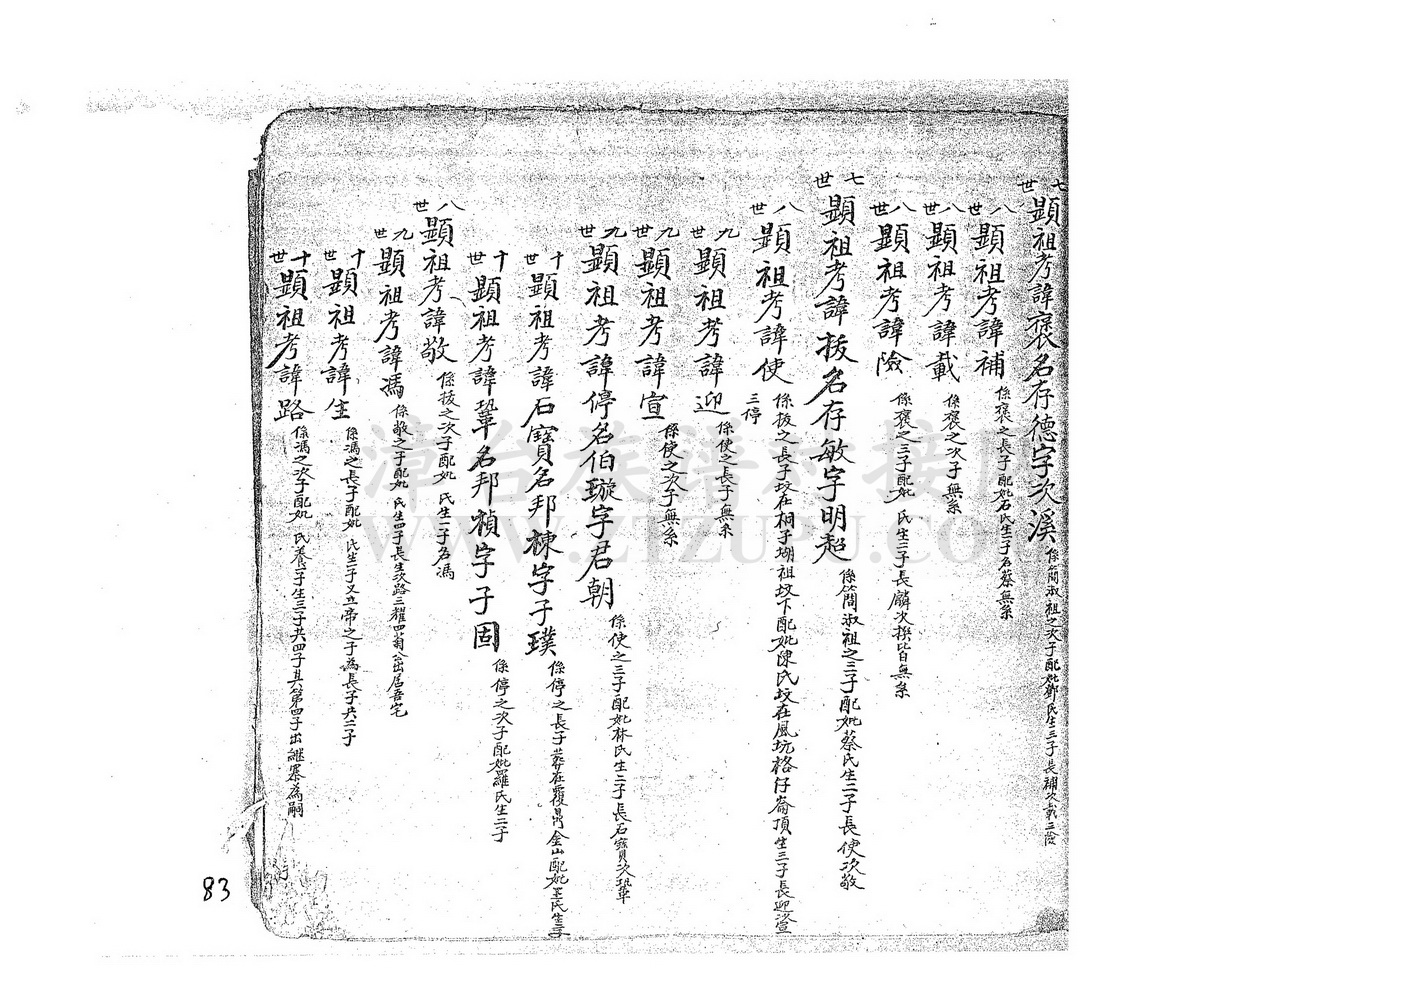 七世 顯祖考諱褒名存德字次溪 係簡淑祖之次子配妣鄭氏生三子長補次載三險
八世 顯祖考諱補 係褒之長子配妣石氏生一子名蔡無系
八世 顯祖考諱載 係褒之次子無系
八世 顯祖考諱險 係褒之三子配妣 氏生二子長麟次撰皆無系
七世 顯祖考諱拔名存敏字明超 係簡淑祖之三子配妣蔡氏生二子長使次敬
八世 顯祖考諱使 係拔之長子坟在桐子塘祖坟下配妣陳氏坟在風坑格仔崙頂生三子長迎次宣三停
九世 顯祖考諱迎 係使之長子無系
九世 顯祖考諱宣 係使之次子無系
九世 顯祖考諱停名伯璇字君朝 係使之三子配妣林氏生二子長石寶次鞏
十世 顯祖考諱石寶名邦棟字子璞 係停之長子葬在覆鼎金山配妣王氏生三子
十世 顯祖考諱鞏名邦楨字子固 係停之次子配妣羅氏生二子
八世 顯祖考諱敬 係拔之次子配妣 氏生一子名馮
九世 顯祖考諱馮 係敬之子配妣 氏生四子長生次路三耀四菊公出居吾宅
十世 顯祖考諱生 係馮之長子配妣 氏生一子又立帝之子為長子共二子
十世 顯祖考諱路 係馮之次子配妣 氏養一子生三子共四子其第四子出繼寨為嗣
83
漳台族譜對接
WWW.ZTZUPU.CO